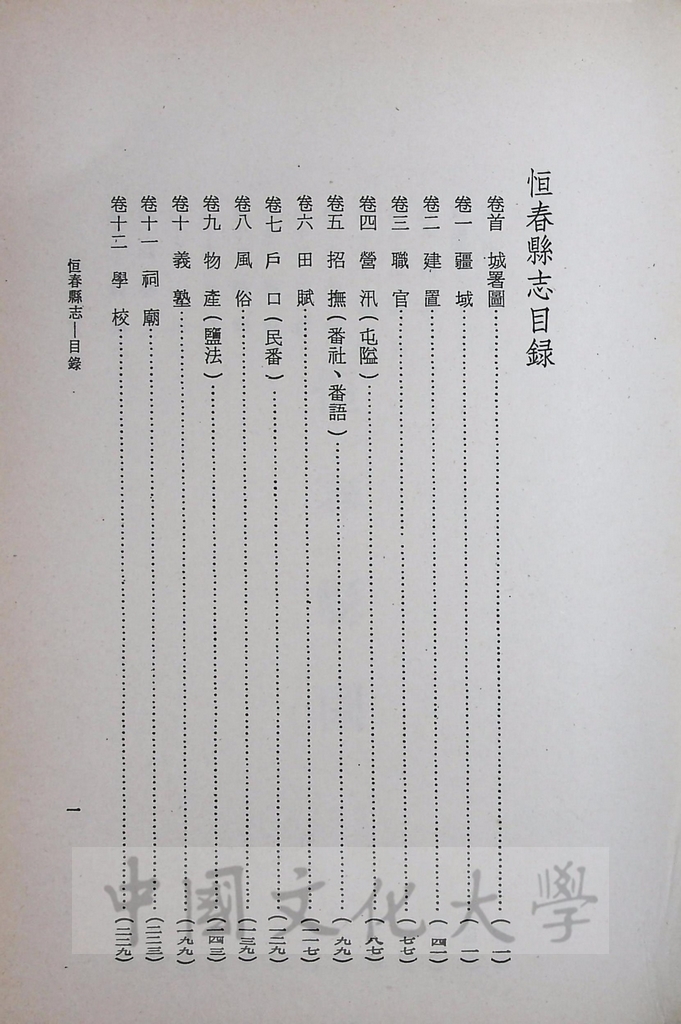 恒春縣志目錄
卷首 城署圖(一)
卷一 疆域(一)
卷二 建置(四一)
卷三 職官(七七)
卷四 營汛(屯隘)(八七)
卷五 招撫(番社、番語)(九九)
卷六 田賦(一一七)
卷七 戶口(民番)(一二九)
卷八 風俗(一三九)
卷九 物產(鹽法)(一四三)
卷十 義塾(一九九)
卷十一 祠廟(二二三)
卷十二 學校(二二九)
恒春縣志—目錄
一
中國文化大學